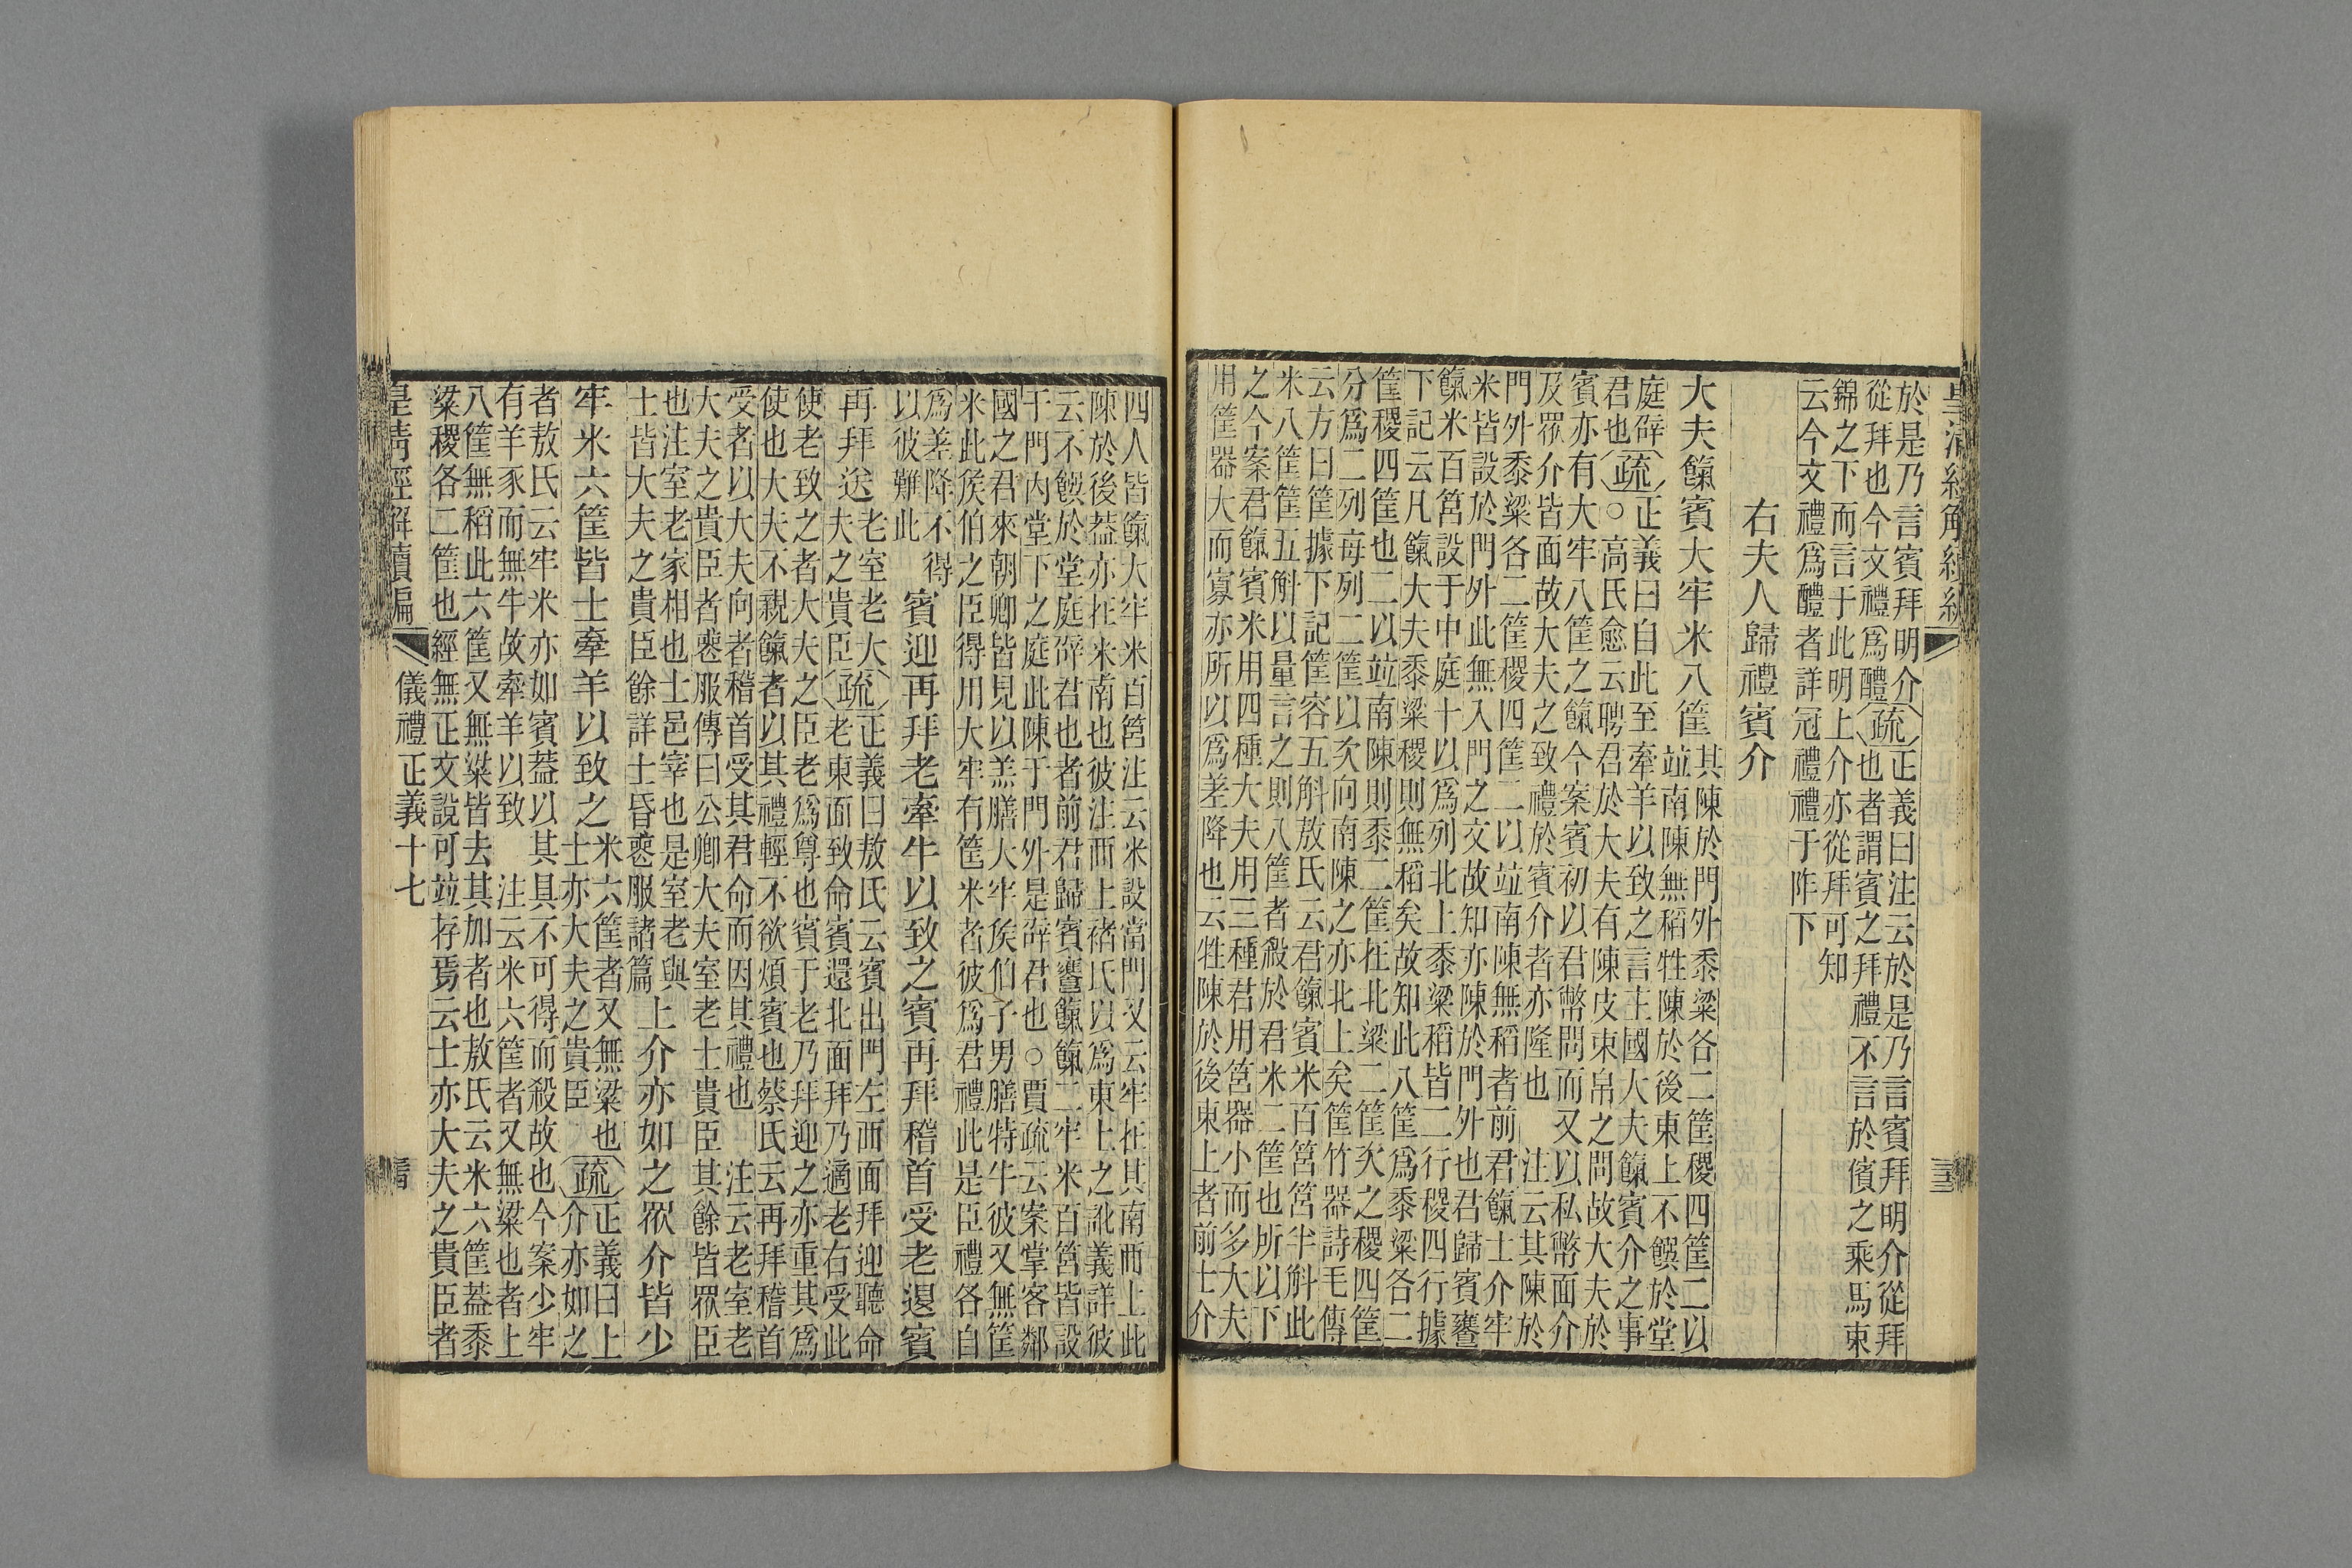 皇清經解續編
於是乃言賓拜明介疏正義曰注云於是乃言賓拜明介從拜
從拜也今文禮爲醴疏也者謂賓之拜禮不言於儐之乘馬束
錦之下而言于此明上介亦從拜可知
云今文禮爲醴者詳冠禮禮于阼下
右夫人歸禮賓介
大夫餼賓大牢米八筐其陳於門外黍粱各二筐稷四筐二以
竝南陳無稻牲陳於後東上不饌於堂
庭辟
君也疏正義曰自此至牽羊以致之言主國大夫餼賓介之事
○高氏愈云聘君於大夫有陳皮束帛之問故大夫於
賓亦有大牢八筐之餼今案賓初以君幣問而又以私幣面介
及眾介皆面故大夫之致禮於賓介者亦隆也　注云其陳於
門外黍粱各二筐稷四筐二以竝南陳無稻者前君餼士介牢
米皆設於門外此無入門之文故知亦陳於門外也君歸賓饔
餼米百筥設于中庭十以爲列北上黍粱稻皆二行稷四行據
下記云凡餼大夫黍粱稷則無稻矣故知此八筐爲黍粱各二
筐稷四筐也二以竝南陳則黍二筐在北粱二筐次之稷四筐
分爲二列每列二筐以次向南陳之亦北上矣筐竹器詩毛傳
云方曰筐據下記筐容五斛敖氏云君餼賓米百筥筥半斛此
米八筐筐五斛以量言之則八筐者殺於君米二筐也所以下
之今案君餼賓米用四種大夫用三種君用筥器小而多大夫
用筐器大而寡亦所以爲差降也云牲陳於後東上者前士介
四人皆餼大牢米百筥注云米設當門又云牢在其南西上此
陳於後葢亦在米南也彼注西上褚氏以爲東上之訛義詳彼
云不饌於堂庭辟君也者前君歸賓饔餼餼二牢米百筥皆設
于門內堂下之庭此陳于門外是辟君也○賈疏云案掌客鄰
國之君來朝卿皆見以羔膳大牢侯伯子男膳特牛彼又無筐
米此侯伯之臣得用大牢有筐米者彼爲君禮此是臣禮各自
爲差降不得
以彼難此
賓迎再拜老牽牛以致之賓再拜稽首受老退賓
再拜送老室老大
夫之貴臣疏正義曰敖氏云賓出門左西面拜迎聽命
老東面致命賓還北面拜乃適老右受此
使老致之者大夫之臣老爲尊也賓于老乃拜迎之亦重其爲
使也大夫不親餼者以其禮輕不欲煩賓也蔡氏云再拜稽首
受者以大夫向者稽首受其君命而因其禮也　注云老室老
大夫之貴臣者喪服傳曰公卿大夫室老士貴臣其餘皆眾臣
也注室老家相也士邑宰也是室老與
士皆大夫之貴臣餘詳士昏喪服諸篇
上介亦如之眾介皆少
牢米六筐皆士牽羊以致之米六筐者又無粱也
士亦大夫之貴臣疏正義曰上
介亦如之
者敖氏云牢米亦如賓葢以其具不可得而殺故也今案少牢
有羊豕而無牛故牽羊以致　注云米六筐者又無粱也者上
八筐無稻此六筐又無粱皆去其加者也敖氏云米六筐葢黍
粱稷各二筐也經無正文說可竝存焉云士亦大夫之貴臣者
皇清經解續編
儀禮正義十七